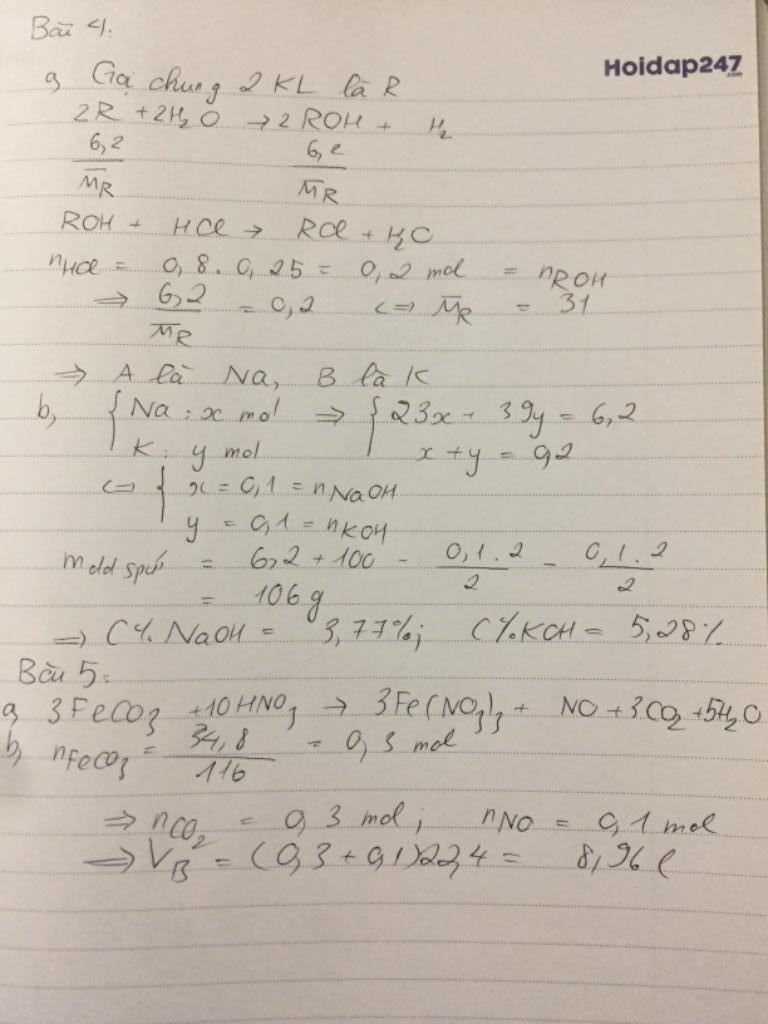 Bài 4:
Hoidap247.com
a, Gọi chung 2 KL là R
2R + 2H₂O → 2ROH + H₂
6,2/M̅R 6,2/M̅R
ROH + HCl → RCl + H₂O
nHCl = 0,8.0,25 = 0,2 mol = nROH
⇒ 6,2/M̅R = 0,2 ⇔ M̅R = 31
⇒ A là Na, B là K
b, { Na: x mol ⇒ { 23x + 39y = 6,2
K: y mol x + y = 0,2
⇔ { x = 0,1 = nNaOH
y = 0,1 = nKOH
mdd spứ = 6,2 + 100 - 0,1.2/2 - 0,1.2/2
= 106g
⇒ C% NaOH = 3,77%; C%KOH = 5,28%
Bài 5:
a, 3FeCO₃ + 10HNO₃ → 3Fe(NO₃)₃ + NO + 3CO₂ + 5H₂O
b, nFeCO₃ = 34,8/116 = 0,3 mol
⇒ nCO₂ = 0,3 mol; nNO = 0,1 mol
⇒ VB = (0,3 + 0,1)22,4 = 8,96 l